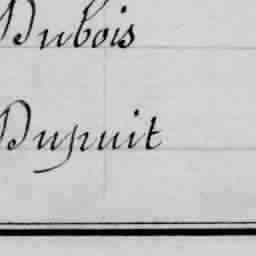 Dubois
Dupuit